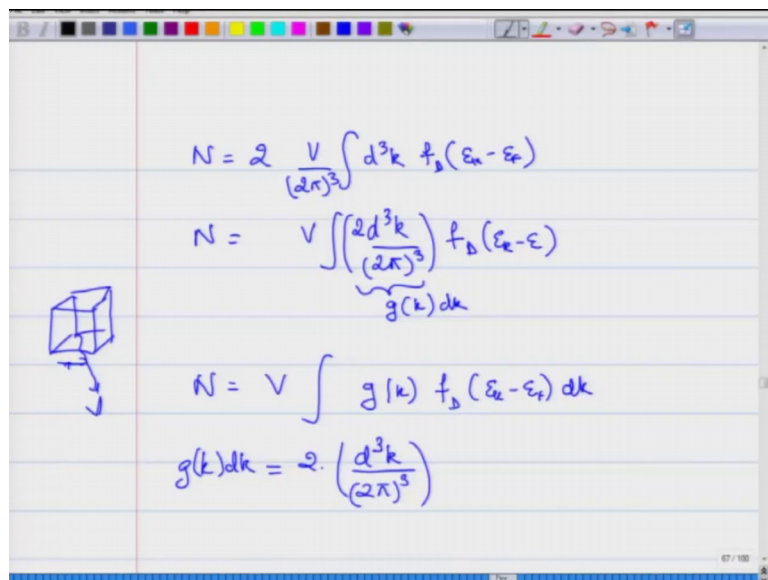 N = 2 V/(2π)³ ∫ d³k f_D(ε_k - ε_F)
N = V ∫ (2d³k/(2π)³) f_D(ε_k - ε)
g(k) dk
N = V ∫ g(k) f_D(ε_k - ε_F) dk
g(k)dk = 2. (d³k/(2π)³)
67 / 100